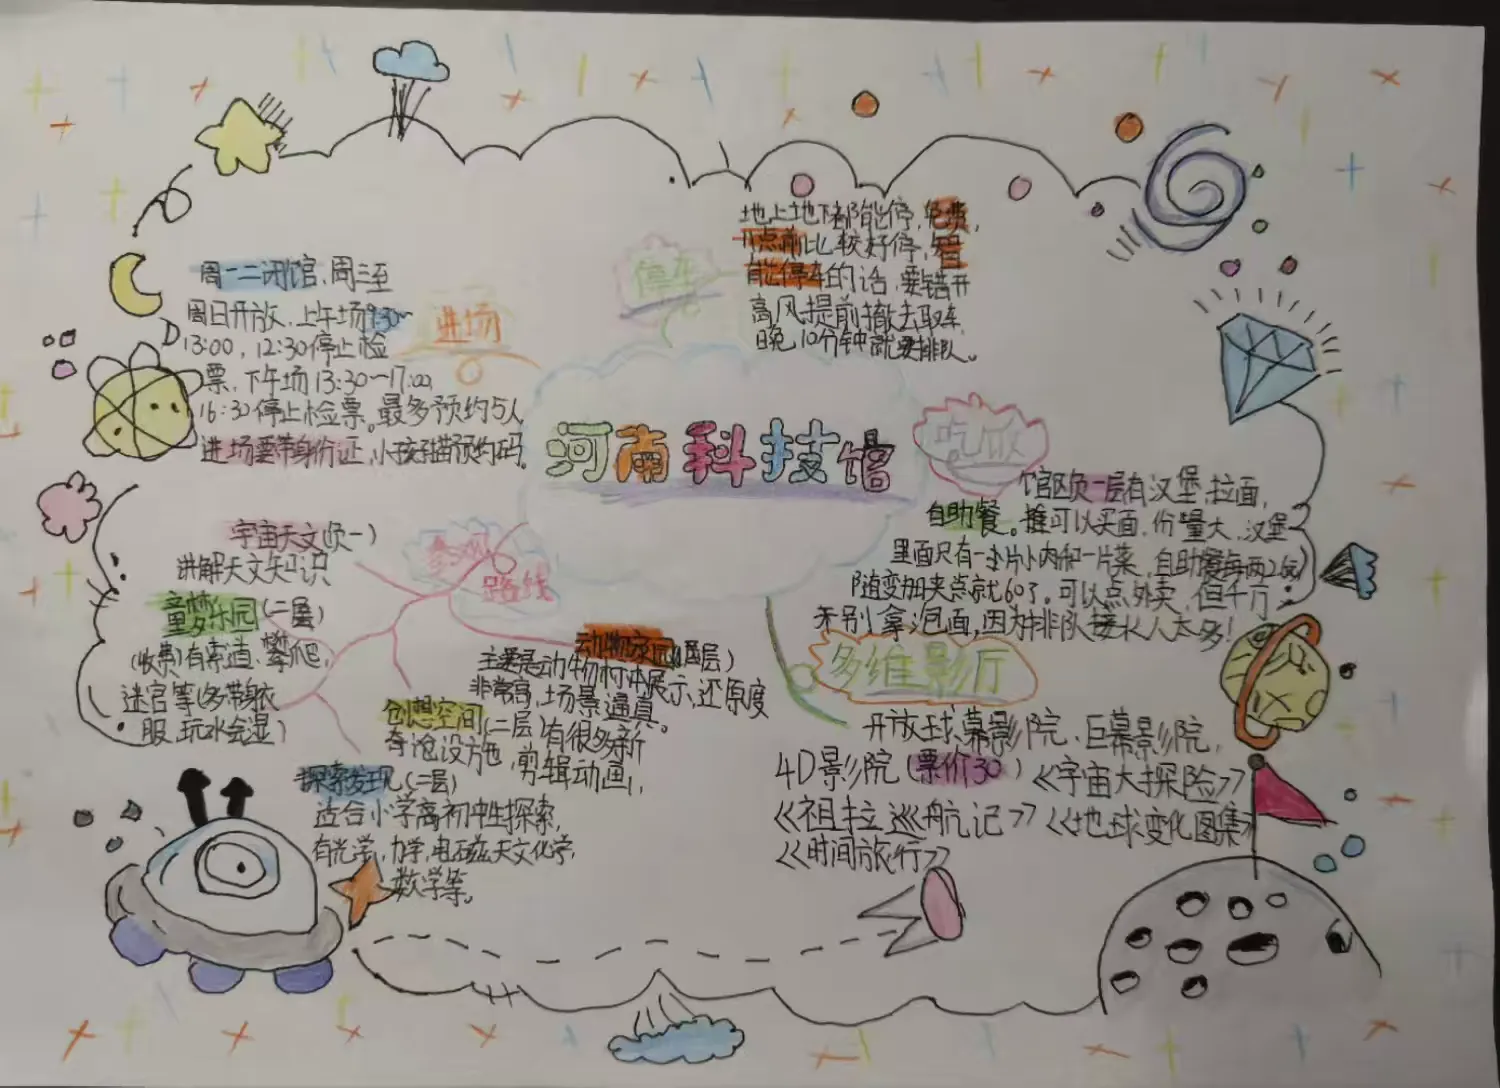 河南科技馆
进场
周一二闭馆,周三至
周日开放,上午场9:30~
13:00,12:30停止检
票,下午场13:30~17:00,
16:30停止检票。最多预约5人
进场要带身份证,小孩扫描预约码。
停车
地上地下都能停,免费,
点前比较好停,
能停车的话,要错开
高风提前撤去取车,
晚10分钟就要排队。
吃饭
馆区负一层有汉堡,拉面,
自助餐。推可以买面,份量大,汉堡
里面只有一小片肉和一片菜,自助餐每两
随变加夹点就60了。可以点外卖,但千万
别拿泡面,因为排队接水人太多!
多维影厅
开放球幕影院、巨幕影院,
4D影院(票价30)《宇宙大探险》
《祖拉巡航记》《地球变化图集》
《时间旅行》
参观
路线
宇宙天文(负一)
讲解天文知识
童梦乐园(二层)
(收费)有索道、攀爬,
迷宫等(多带身衣
服,玩水会湿)
探索发现(二层)
适合小学高初中生探索,
有光学,力学,电磁,天文化学,
数学等。
创想空间(二层)有很多新
奇设施,剪辑动画,
动物家园(层)
主要是动物标本展示,还原度
非常高,场景逼真。